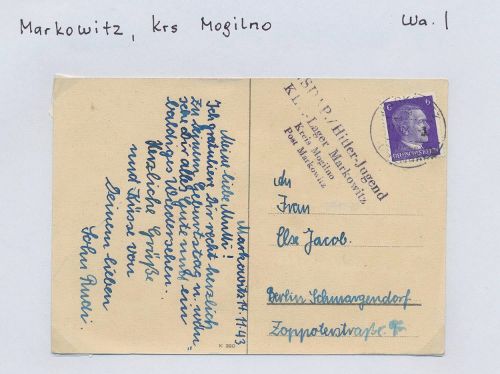 Markowitz, Krs Mogilno
Wa. 1
Markowitz 11.43
Meine liebe Mutti!
Ich gratuliere Dir recht herzlich
zu Deinem Geburtstag u. wün-
sche Dir alles Gute und ein
baldiges Wiedersehen.
Herzliche Grüße
und Küsse von
Deinem lieben
Sohn Rudi.
K 990
NSDAP./Hitler-Jugend
Lager Markowitz
Kreis Mogilno
Post Markowitz
6 6
An
Frau
Else Jacob.
Berlin Schmargendorf
Zoppoterstraße